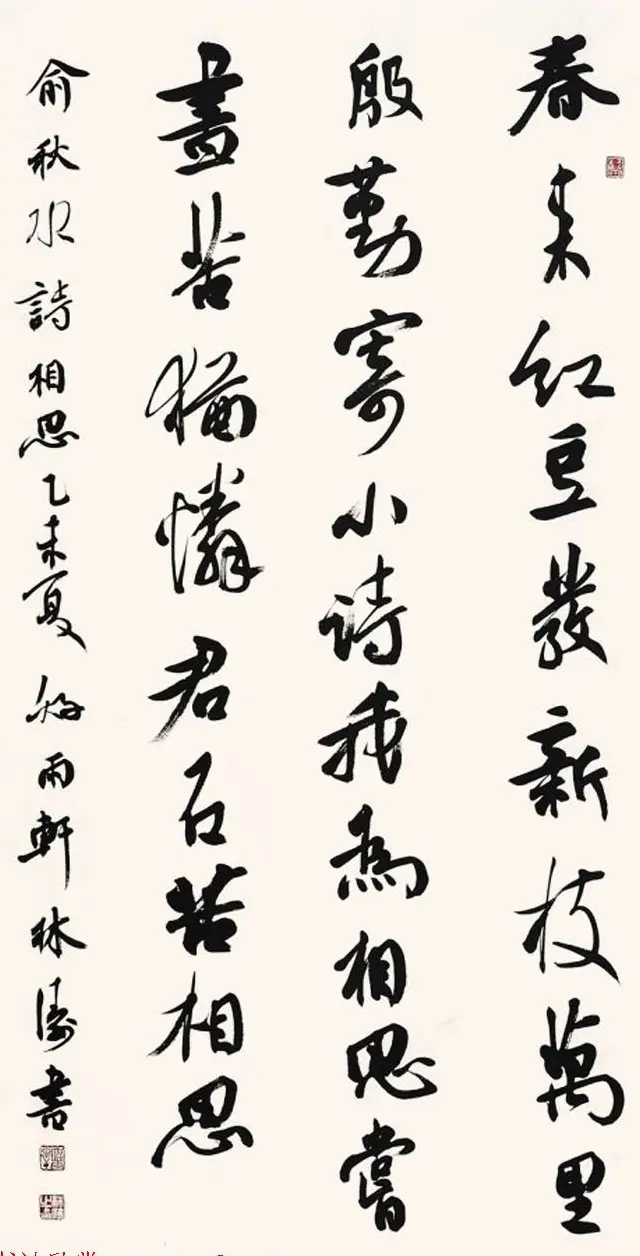 春来红豆發新枝萬里
殷勤寄小诗我為相思嘗
盡苦猶憐君苦相思
俞秋水詩相思乙未夏好雨軒林濤書